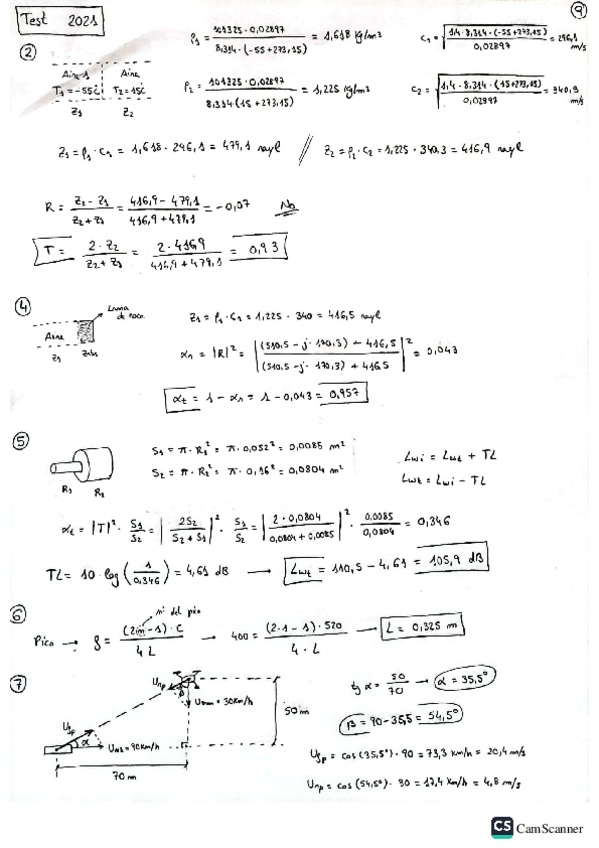 Test 2021
9
2
Aire 1 Aire
T₁=-55ºC T₂=15ºC
Z₁ Z₂
ρ₁ = 101325·0,02897 / 8,314·(-55+273,15) = 1,618 kg/m³
c₁ = √(1,4·8,314·(-55+273,15) / 0,02897) = 296,1 m/s
ρ₂ = 101325·0,02897 / 8,314·(15+273,15) = 1,225 kg/m³
c₂ = √(1,4·8,314·(15+273,15) / 0,02897) = 340,3 m/s
Z₁ = ρ₁·c₁ = 1,618·296,1 = 479,1 rayl // Z₂ = ρ₂·c₂ = 1,225·340,3 = 416,9 rayl
R = Z₂-Z₁ / Z₂+Z₁ = 416,9-479,1 / 416,9+479,1 = -0,07 No
T = 2·Z₂ / Z₂+Z₁ = 2·416,9 / 416,9+479,1 = 0,93
4
Lana de roca
Aire
Z₁
Z₁ = ρ₁·c₂ = 1,225·340 = 416,5 rayl
αr = |R|² = |(510,5-j·170,3)-416,5 / (510,5-j·170,3)+416,5|² = 0,043
αt = 1-αr = 1-0,043 = 0,957
5
R₁ R₂
S₁ = π·R₁² = π·0,052² = 0,0085 m²
S₂ = π·R₂² = π·0,16² = 0,0804 m²
Lwi = Lwt + TL
Lwt = Lwi - TL
αt = |T|²·S₁/S₂ = |2S₂ / S₂+S₁|²·S₁/S₂ = |2·0,0804 / 0,0804+0,0085|²·0,0085/0,0804 = 0,346
TL = 10·log(1/0,346) = 4,61 dB → Lwt = 110,5-4,61 = 105,9 dB
6
nº del pico
Pico → f = (2m-1)·c / 4L → 400 = (2·1-1)·520 / 4·L → L = 0,325 m
7
Urp
β
Udron = 30km/h
50m
Ufp
α
= 90km/h
70m
tg α = 50/70 → α = 35,5º
β = 90-35,5 = 54,5º
Ufp = cos(35,5º)·90 = 73,3 km/h = 20,4 m/s
Urp = cos(54,5º)·30 = 17,4 km/h = 4,8 m/s
CS CamScanner